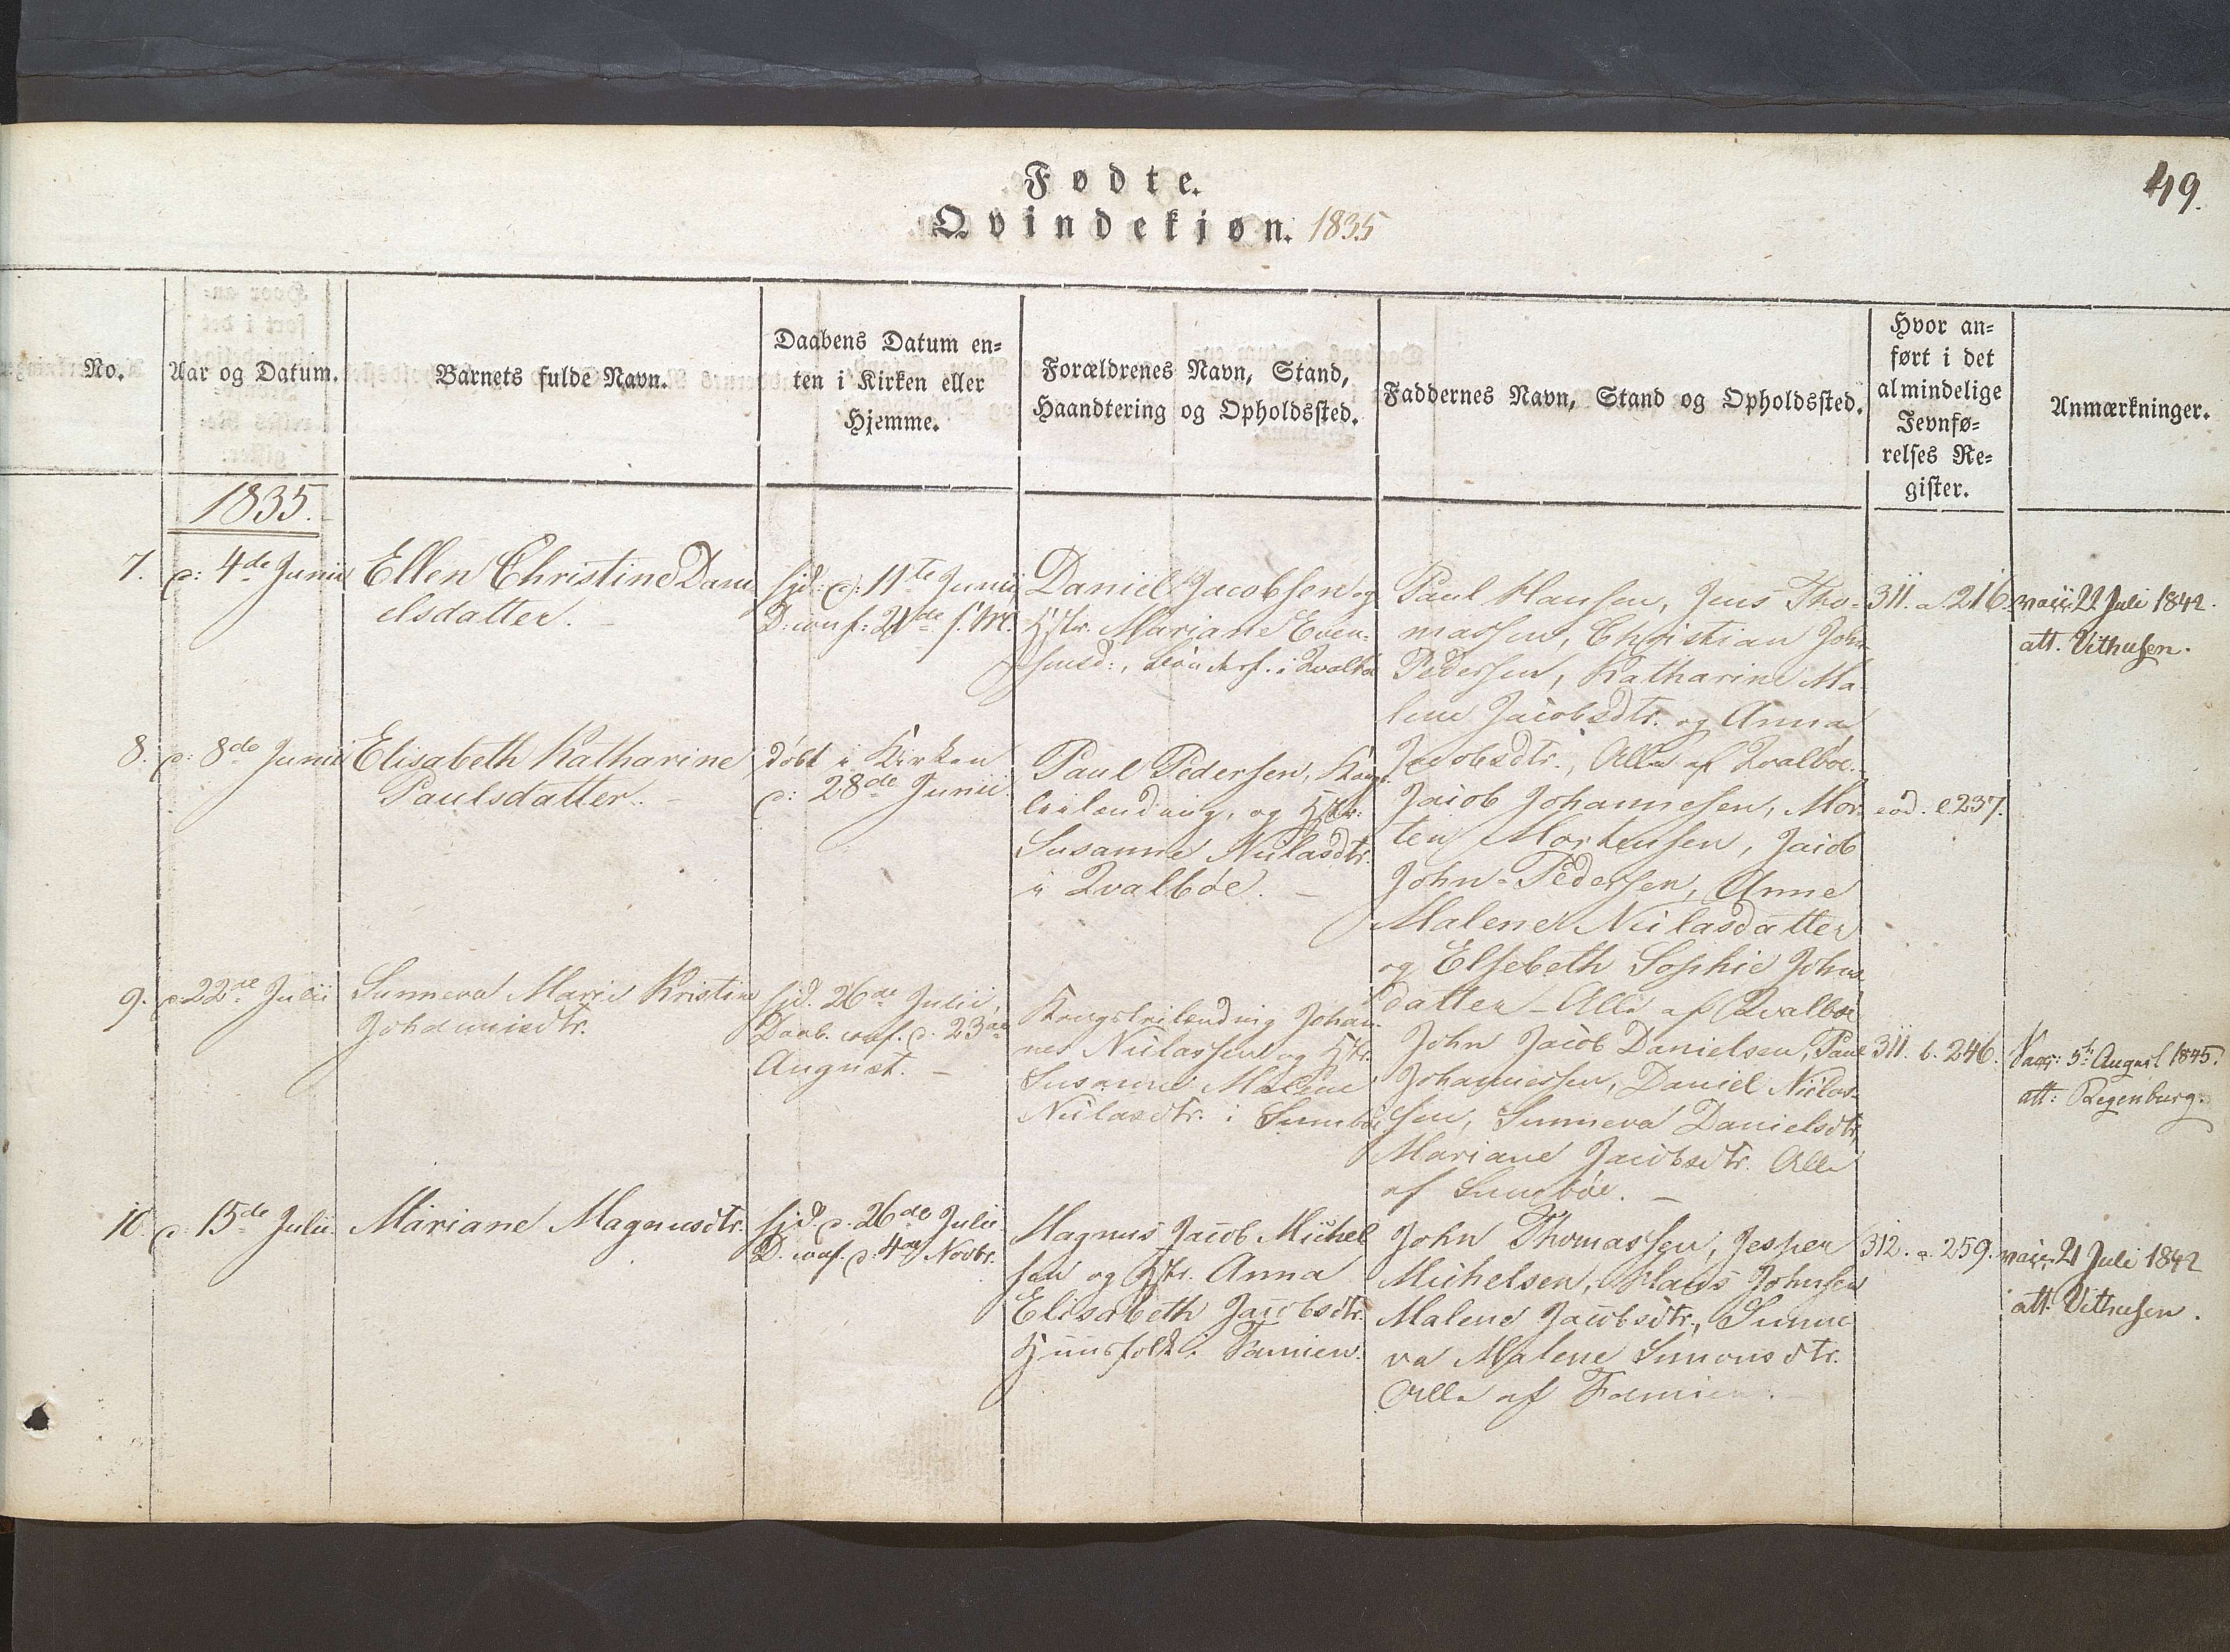 49.
Fødte.
Qvindekjøn. 1835
No.
Aar og Datum.
Barnets fulde Navn.
Daabens Datum en-
ten i Kirken eller
Hjemme.
Forældrenes Navn, Stand,
Haandtering og Opholdssted.
Faddernes Navn, Stand og Opholdssted.
Hvor an-
ført i det
almindelige
Jevnfø-
relses Re-
gister.
Anmærkninger.
1835.
7.
d: 4de Junii
Ellen Christine Dani
elsdatter.
hjd: d: 11te Junii
D: conf: 21de s. M.
Daniel Jacobsen og
Hstr. Mariane Even-
sensd:, i Qvalbø
Paul Hansen, Jens Tho-
massen, Christian John
Pedersen, Katharine Ma
lene Jacobsdtr. og Anna
Jacobsdtr., Alle af Qvalbøe.
311. a. 216.
vacc: 22 Juli 1842.
att. Vithusen.
8.
d: 8de Junii
Elisabeth Katharine
Paulsdatter. -
Døbt i Kirken
d: 28de Junii
Paul Pedersen, Kongs
leilænding, og Hstr:
Susanne Niclasdtr.
i Qvalbøe. -
Jacob Johannesen, Mor-
ten Mortensen, Jacob
John-Pedersen, Anne
Malene Niclasdatter
og Elsebeth Sophie Johns
datter - Alle af Qvalbøe
eod. e. 237.
9.
d. 22de Julii
Sunneva Marie Kristine
Johannisdtr.
hjd. 26de Julii,
Daab. conf. d. 23de
August. -
Kongsleilænding Johan-
nes Niclassen og Hstr.
Susanne Malene
Niclasdtr. i Sumbøe
John Jacob Danielsen, Paul
Johannessen, Daniel Niclas-
sen, Sunneva Danielsdtr,
Mariane Jacobsdtr. Alle
af Sumbøe. -
311. b. 246.
Vacc: 5te August 1845.
att: Regenburg.
10.
d. 15de Julii
Mariane Magnusdtr.
hjd. d. 26de Julii
D. conf. d. 4de Novbr.
Magnus Jacob Michel
sen og Hstr. Anna
Elisabeth Jacobsdtr.
Huusfolk i Famien.
John Thomassen, Jesper
Michelsen, Klaus Johnsen
Malene Jacobsdtr., Sunne
va Malene Simonsdtr.
Alle af Famien. -
312. a. 259.
vacc: 21 Juli 1842
att. Vithusen.